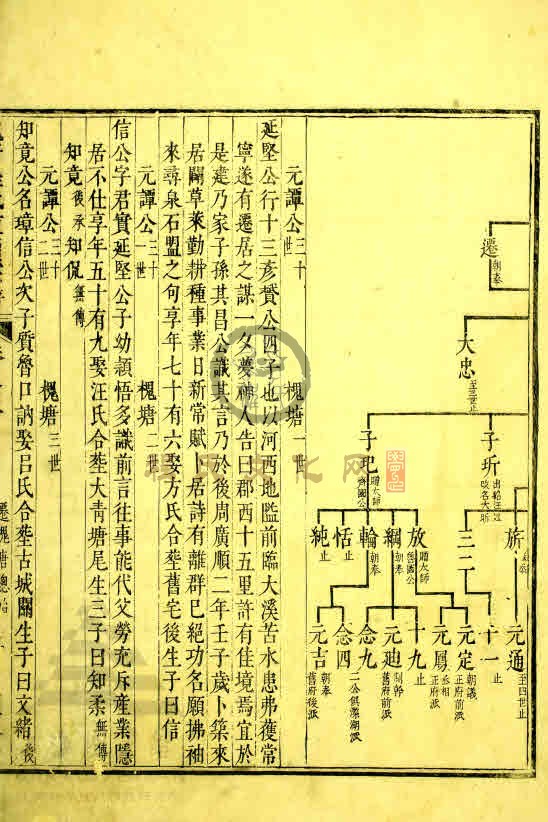 遷朝奉
大忠至三世止
子圻出紹汪逕改名大昕
子圯贈太師齊國公
旂
三二
放贈太師魯國公
綱朝奉
輪朝奉
恬止
純止
元通至四世止
十一止
元定朝議正府前派
元鳳丞相正府派
十九止
元廸制幹舊府前派
念九
念四二公俱潺湖派
元吉朝奉舊府後派
元譚公三十世 槐塘一世
延堅公行十三彥贇公四子也以河西地隘前臨大溪苦水患弗獲常
寧遂有遷居之謀一夕夢神人告曰郡西十五里許有佳境焉宜於
是建乃家子孫其昌公識其言乃於後周廣順二年壬子歲卜築來
居闢草萊勤耕種事業日新常賦卜居詩有離群已絕功名願拂袖
來尋泉石盟之句享年七十有六娶方氏合塟舊宅後生子曰信
元譚公三十一世 槐塘二世
信公字君實延堅公子幼穎悟多識前言往事能代父勞充斥產業隱
居不仕享年五十有九娶汪氏合塟大青塘尾生三子曰知柔無傳
知竟後承知侃無傳
元譚公三十二世 槐塘三世
知竟公名璋信公次子質魯口訥娶呂氏合塟古城關生子曰文緒後
遷槐塘總